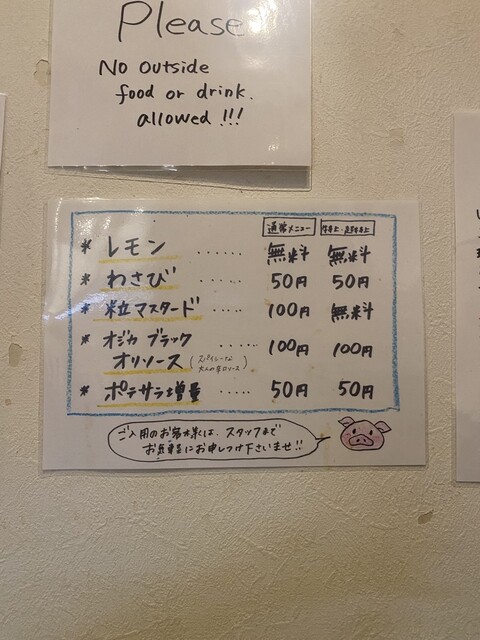 Please
No outside
food or drink.
allowed !!!
通常メニュー 特上・超特上
* レモン ...... 無料 無料
* わさび ..... 50円 50円
* 粒マスタード ..... 100円 無料
* オジカ ブラック
オリソース (スパイシーな大人の辛口ソース) ...... 100円 100円
* ポテサラ増量 ..... 50円 50円
ご入用のお客様は、スタッフまで
お気軽にお申しつけ下さいませ!!